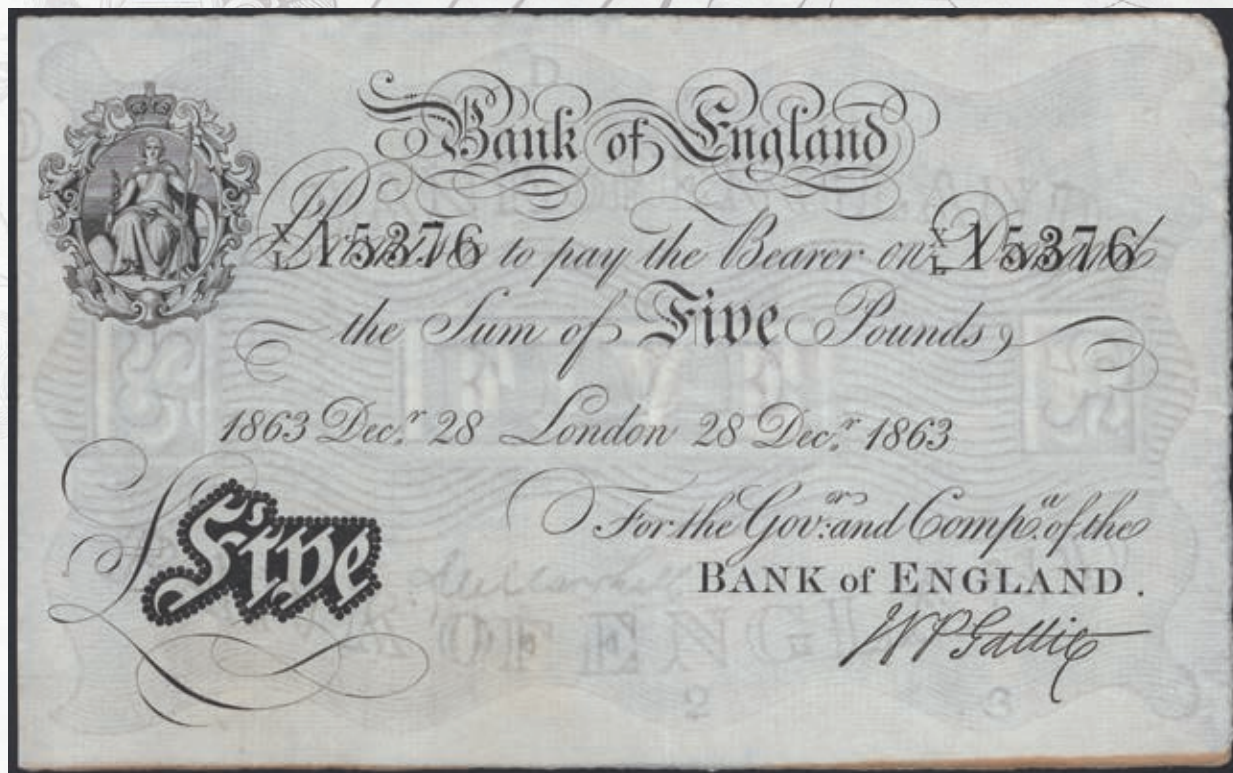 Bank of England
I Promise to pay the Bearer on Demand
X/L 15376 X/L 15376
the Sum of Five Pounds
1863 Decr. 28 London 28 Decr. 1863
For the Govr. and Compa. of the
BANK of ENGLAND.
Five
W P Gattie